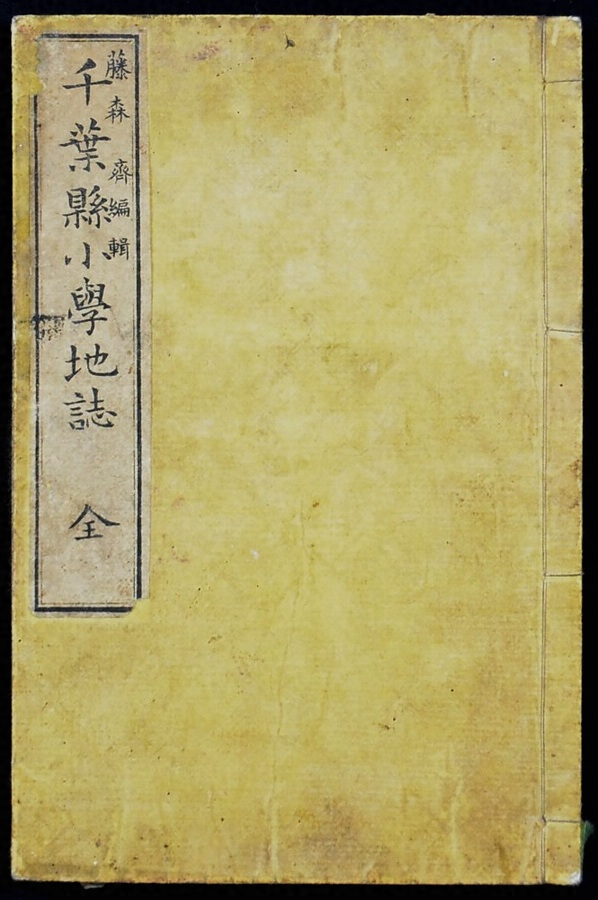 藤森 齊編輯
千葉縣小學地誌 全